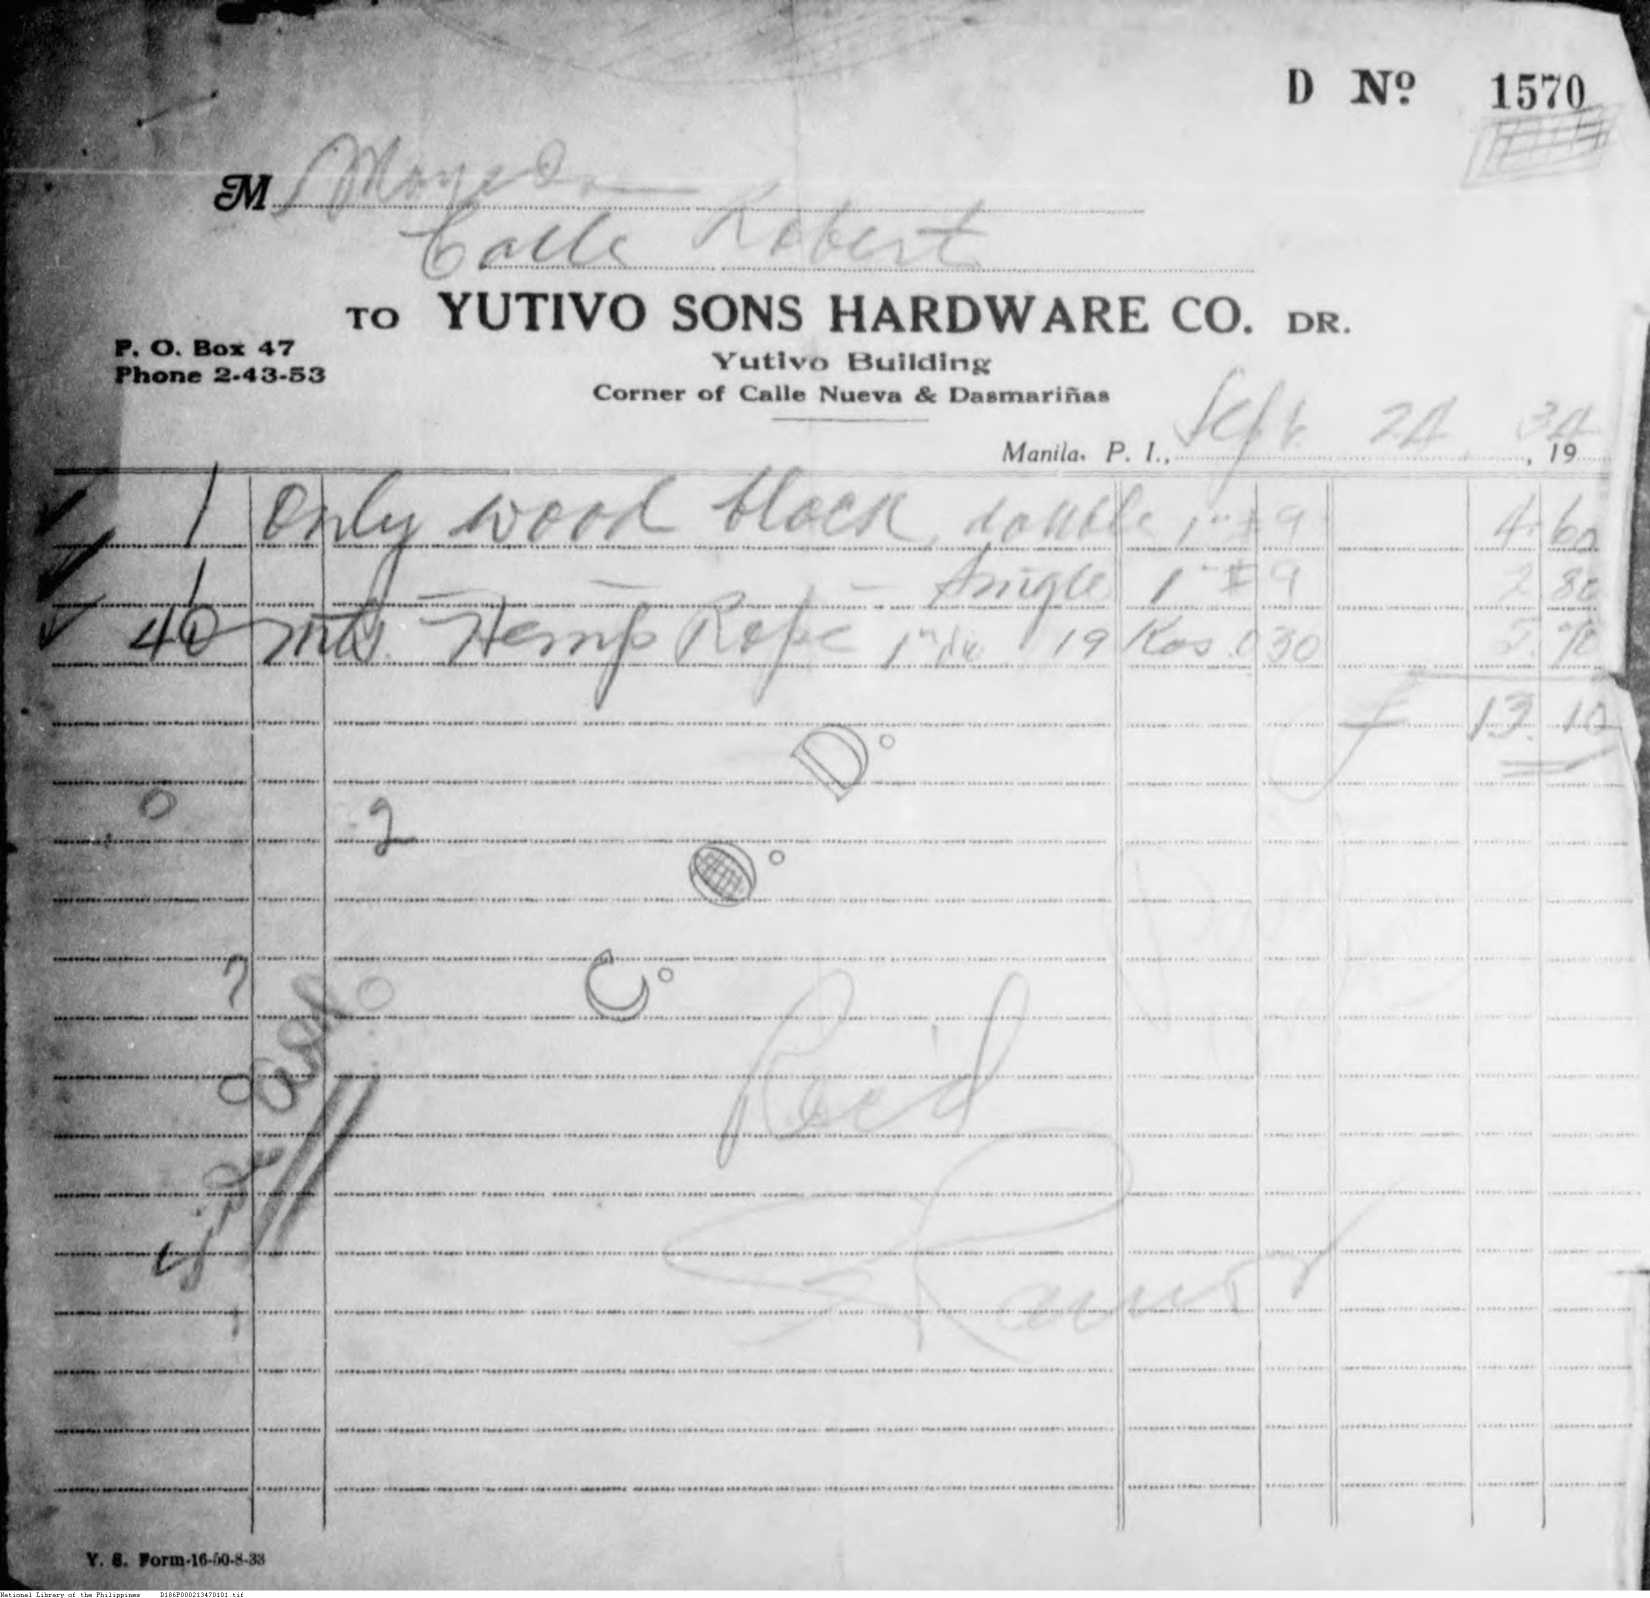 D Nº 1570
M
Calle Robert
TO YUTIVO SONS HARDWARE CO. DR.
P. O. Box 47
Phone 2-43-53
Yutivo Building
Corner of Calle Nueva & Dasmariñas
Manila, P. I., Sept. 24, 1934
1 Only wood block, double 1" # 9 4.60
1 — — — Single 1" # 9 2 80
40 mts. Hemp Rope 1" 19 Kos 0 30 5.70
13.10
2
D.
C.
Rec'd
Y. S. Form-16-50-8-33
National Library of the Philippines D186P000213470101.tif